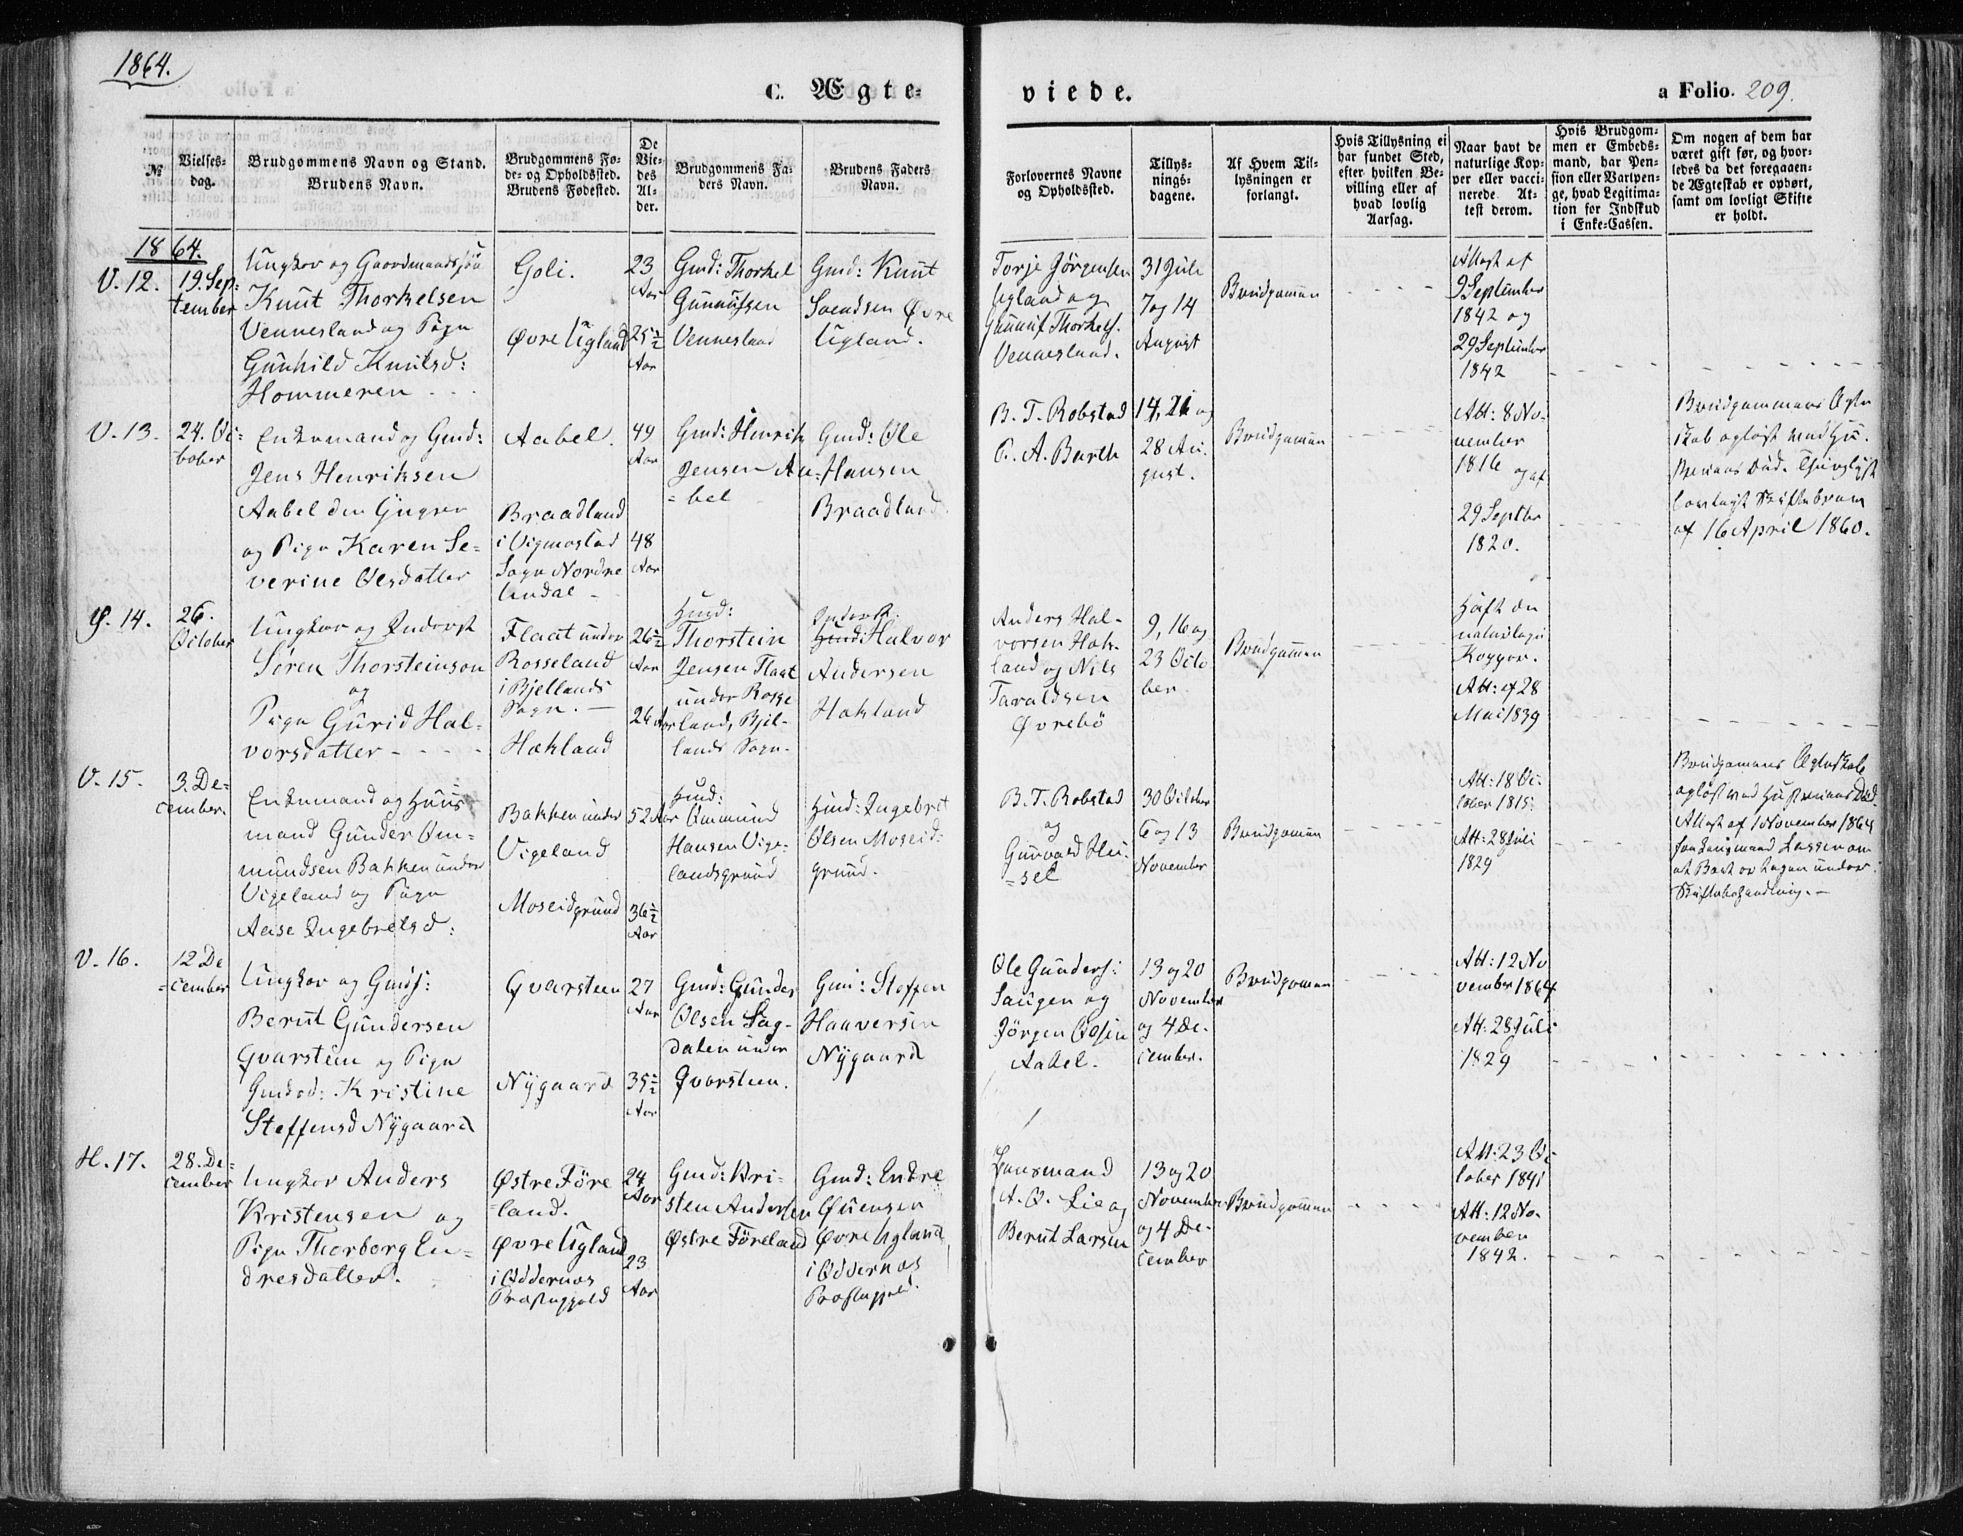 1864.
C. Ægte-
viede.
a Folio. 209.
№
Vielses-
dag.
Brudgommens Navn og Stand.
Brudens Navn.
Brudgommens Fø-
de- og Opholdssted.
Brudens Fødested.
De
Vie-
des
Al-
der.
Brudgommens Fa-
ders Navn.
Brudens Faders
Navn.
Forlovernes Navne
og Opholdssted.
Tillys-
nings-
dagene.
Af Hvem Til-
lysningen er
forlangt.
Hvis Tillysning ei
har fundet Sted,
efter hvilken Be-
villing eller af
hvad lovlig
Aarsag.
Naar havt de
naturlige Kop-
per eller vacci-
nerede. At-
test derom.
Hvis Brudgom-
men er Embeds-
mand, har Pen-
sion eller Vartpen-
ge, hvad Legitima-
tion for Indskud
i Enke-Cassen.
Om nogen af dem har
været gift før, og hvor-
ledes da det foregaaen-
de Ægteskab er ophørt,
samt om lovligt Skifte
er holdt.
1864.
V. 12.
19. Sep-
tember
Ungkar og Gaardmandssøn
Knut Thorkelsen
Vennesland og Pige
Gunhild Knutsd:
Hommeren
Goli.
Øvre Ugland
23
Aar
25½
Aar
Gmd: Thorkel
Gunnufsen
Vennesland
Gmd: Knut
Svendsen Øvre
Ugland.
Torje Jörgensen
Ugland og
Gunnuf Thorkels.
Vennesland.
31 Juli
7 og 14
August
Brudgommen
Attest af
9 September
1842 og
29 September
1842
V. 13.
24. Oc-
tober
Enkemand og Gmd:
Jens Henriksen
Aabel den Yngre
og Pige Karen Se-
verine Olsdatter
Aabel.
Braadland
i Vigmostad
Sogn Nordre
Undal
49
Aar
48
Aar
Gmd: Henrik
Jensen Aa-
bel
Gmd: Ole
Hansen
Braadland
B. T. Robstad
O. A. Barth
14, 21 og
28 Au-
gust.
Brudgommen
Att: 8 No-
vember
1816 og af
29 Septbr
1820.
Brudgommens Ægte
skab opløst ved Hu-
struens Død.
af 16 April 1860.
Ø. 14.
26.
October
Ungkar og Inderst
Søren Thorsteinson
og
Pige Gurid Hal-
vorsdatter
Flaat under
Rosseland
i Bjellands
Sogn.
Hækland
26½
Aar
26 Aar
Hmd:
Thorstein
Jensen Flaat
under Rosse
land, Bjel-
lands Sogn.
Inderst.
Hmd: Halvor
Andersen
Hakland
Anders Hal-
vorsen Hak-
land og Nils
Taraldsen
Øvrebö
9, 16 og
23 Octo
ber.
Brudgommen
Haft de
naturlige
Kopper.
Att: af 28
Mai 1839
V. 15.
3. De-
cember.
Enkemand og Huus
mand Gunder Om-
mundsen Bakken under
Vigeland og Pige
Aase Ingebretsd:
Bakken under
Vigeland
Moseidgrund
52 Aar
36½
Aar
Hmd:
Ommund
Hansen Vige-
landsgrund
Hmd: Ingebret
Olsen Moseid-
grund.
B. T. Robstad
og
Gunvald Hu-
sel
30 October
6 og 13
November
Brudgommen
Att: 18 Oc-
tober 1815.
Att: 28 Juli
1829
Brudgommens Ægteskab
opløst ved Hustruens Død.
Attest af 1 November 1864
fra Lensmand Lassen om
at Boet er tagen under
Skiftebehandling.
V. 16.
12 De
cember
Ungkar og Gmds:
Berut Gundersen
Qvarstein og Pige
Gmdsd: Kristine
Steffensd Nygaard
Qvarsteen
Nygaard
27
Aar
35½
Aar
Gmd: Gunder
Olsen Sag-
dalen under
Qvarsteen.
Gmd: Steffen
Haaversen
Nygaard
Ole Gunders:
Saugen og
Jörgen Olsen
Aabel.
13 og 20
November
og 4 De-
cember.
Brudgommen
Att: 12 No
vember 1864
Att: 28 Juli
1829
H. 17.
28. De-
cember
Ungkar Anders
Kristensen og
Pige Thorborg En-
dresdatter.
Østre Före
land.
Øvre Ugland
i Oddernæs
Præstegjeld
24
Aar
23
Aar
Gmd: Kri-
sten Andersen
Østre Föreland
Gmd: Endre
Evensen
Øvre Ugland
i Oddernæs
Præstegjeld.
Lensmand
A. O. Lie og
Berut Larsen
13 og 20
November
og 4 De-
cember
Brudgommen
Att: 23 Oc
tober 1841
Att: 12 No-
vember
1842.